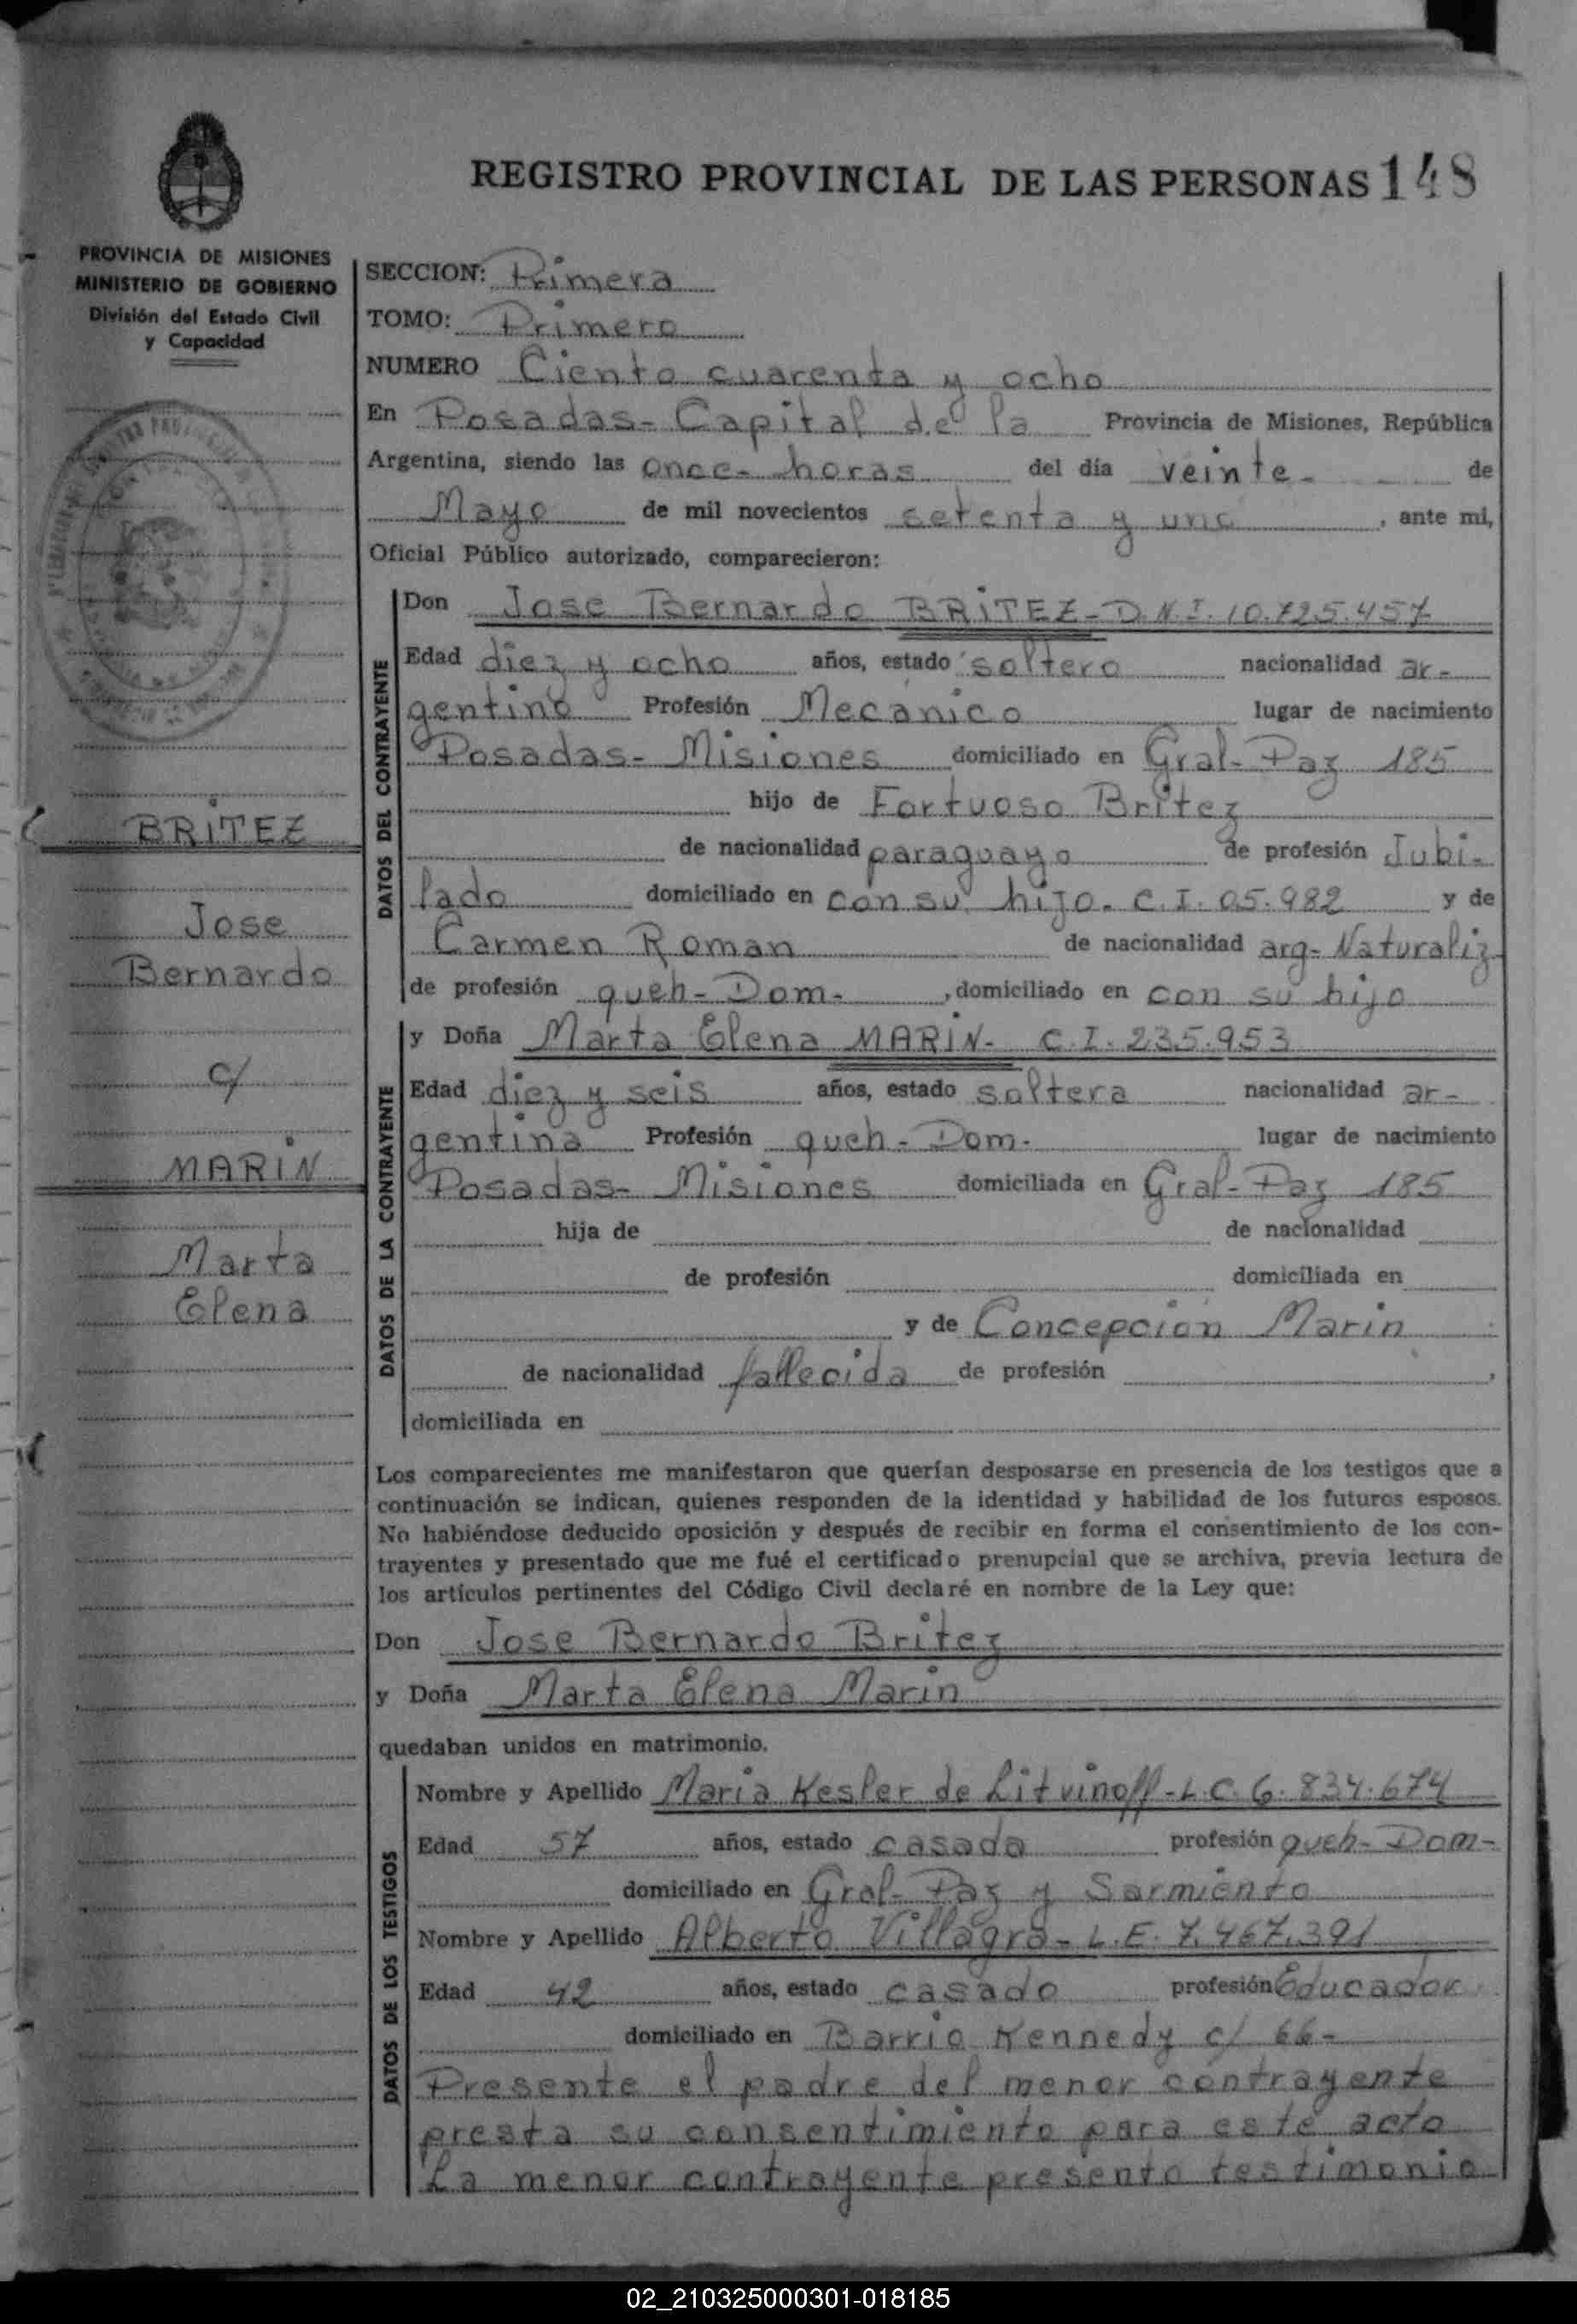 REGISTRO PROVINCIAL DE LAS PERSONAS 148
PROVINCIA DE MISIONES
MINISTERIO DE GOBIERNO
División del Estado Civil
y Capacidad
BRITEZ
Jose
Bernardo
c/
MARIN
Marta
Elena
SECCION: Primera
TOMO: Primero
NUMERO Ciento cuarenta y ocho
En Posadas- Capital de la Provincia de Misiones, República
Argentina, siendo las once- horas del día veinte- de
Mayo de mil novecientos setenta y uno, ante mi,
Oficial Público autorizado, comparecieron:
DATOS DEL CONTRAYENTE
Don Jose Bernardo BRITEZ- D.N.I. 10.725.457
Edad diez y ocho años, estado soltero nacionalidad ar-
gentino Profesión Mecanico lugar de nacimiento
Posadas- Misiones domiciliado en Gral- Paz 185
hijo de Fortuoso Britez
de nacionalidad paraguayo de profesión Jubi-
lado domiciliado en con su hijo. C.I. 05.982 y de
Carmen Roman de nacionalidad arg- Naturaliz
de profesión queh- Dom-, domiciliado en con su hijo
DATOS DE LA CONTRAYENTE
y Doña Marta Elena MARIN- C.I. 235.953
Edad diez y seis años, estado soltera nacionalidad ar-
gentina Profesión queh- Dom- lugar de nacimiento
Posadas- Misiones domiciliada en Gral- Paz 185
hija de de nacionalidad
de profesión domiciliada en
y de Concepcion Marin
de nacionalidad fallecida de profesión ,
domiciliada en
Los comparecientes me manifestaron que querían desposarse en presencia de los testigos que a
continuación se indican, quienes responden de la identidad y habilidad de los futuros esposos.
No habiéndose deducido oposición y después de recibir en forma el consentimiento de los con-
trayentes y presentado que me fué el certificado prenupcial que se archiva, previa lectura de
los artículos pertinentes del Código Civil declaré en nombre de la Ley que:
Don Jose Bernardo Britez
y Doña Marta Elena Marin
quedaban unidos en matrimonio.
DATOS DE LOS TESTIGOS
Nombre y Apellido Maria Kesler de Litvinoff- L.C. 6.834.674
Edad 57 años, estado casada profesión queh- Dom-
domiciliado en Gral- Paz y Sarmiento
Nombre y Apellido Alberto Villagra- L.E. 7.467.391
Edad 42 años, estado casado profesión Educador
domiciliado en Barrio Kennedy c/ 66-
Presente el padre del menor contrayente
presta su consentimiento para este acto
La menor contrayente presento testimonio
02_210325000301-018185